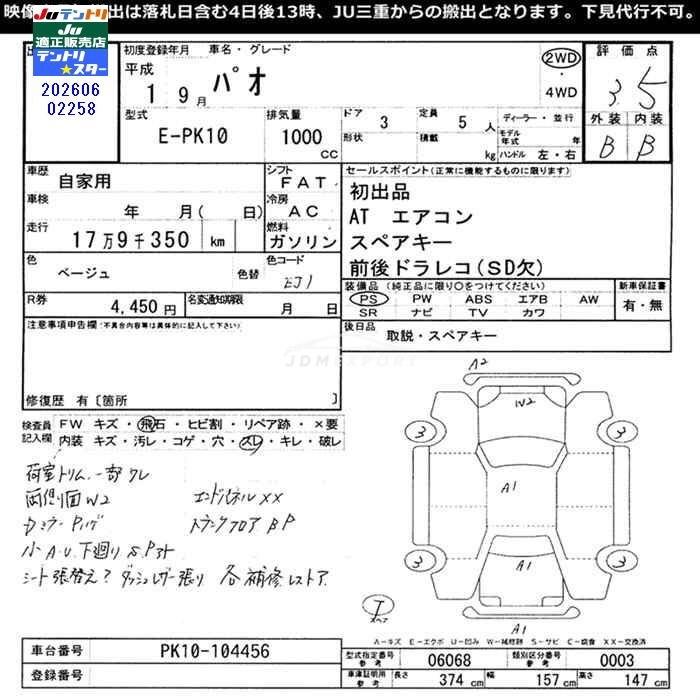 映像 出は落札日含む4日後13時、JU三重からの搬出となります。下見代行不可。
JUテントリ
JU
適正販売店
テントリ
★スター
202606
02258
初度登録年月 車名・グレード
平成
1 9月 パオ
2WD
・
4WD
評価点
3.5
外装 内装
B B
型式 E-PK10
排気量 1000 cc
ドア 3
形状
定員 5 人
積載 kg
ディーラー・並行
モデル年式 年
ハンドル 左・右
車歴 自家用
シフト FAT
車検 年 月( 日)
冷房 AC
走行 17万9千350 km
燃料 ガソリン
色 ベージュ 色替
色コード EJ1
R券 4,450円
名変通知期限 月 日
セールスポイント(正常に機能するものに限ります)
初出品
AT エアコン
スペアキー
前後ドラレコ(SD欠)
装備品(純正品に限り○をつけてください)
PS PW ABS エアB AW
SR ナビ TV カワ
新車保証書
有・無
後日品 取説・スペアキー
注意事項申告欄(不具合内容等は具体的に記入して下さい)
修復歴 有〔箇所 〕
JDMEXPORT
検査員記入欄
FW キズ・飛石・ヒビ割・リペア跡・×要
内装 キズ・汚レ・コゲ・穴・スレ・キレ・破レ
荷室トリム一部ワレ
両側リ面W2 エンドパネルXX
トランクフロア BP
小A.U.下廻りS.P
シート張替え?ダッシュレザー張り 各補修レストア
A2
W2
3 3
A1
3 3
A1
A1
T
スペア
A-キズ E-エクボ U-凹み W-補修跡 S-サビ C-腐食 XX-交換済
車台番号 PK10-104456
登録番号
型式指定番号 参考 06068
類別区分番号 参考 0003
車庫証明用 参考 長さ 374 cm 幅 157 cm 高さ 147 cm